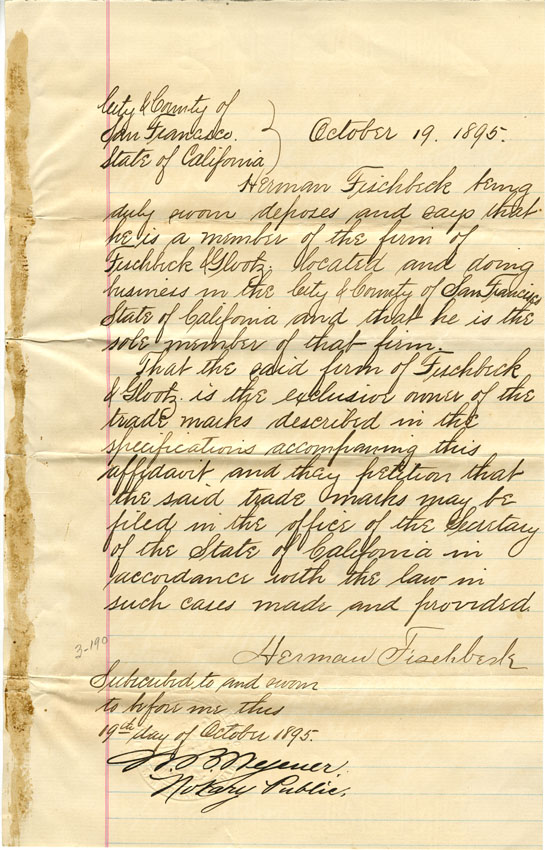 City & County of
San Francisco.
State of California
October 19. 1895.
Herman Fischbeck being
duly sworn deposes and says that
he is a member of the firm of
Fischbeck & Glootz, located and doing
business in the City & County of San Francisco
State of California and that he is the
sole member of that firm.
That the said firm of Fischbeck
& Glootz. is the exclusive owner of the
trade marks described in the
specifications accompaning this
affidavit and they petition that
the said trade marks may be
filed in the office of the Secretary
of the State of California in
accordance with the law in
such cases made and provided.
3-190
Herman Fischbeck
Subscribed to and sworn
to before me this
19th day of October 1895.
Notary Public.